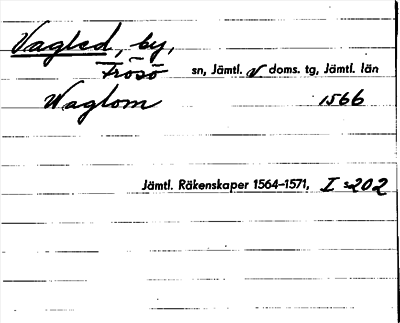 Vagled, by,
Frösö sn, Jämtl. v doms. tg, Jämtl. län
Waglom 1566
Jämtl. Räkenskaper 1564–1571, I s 202